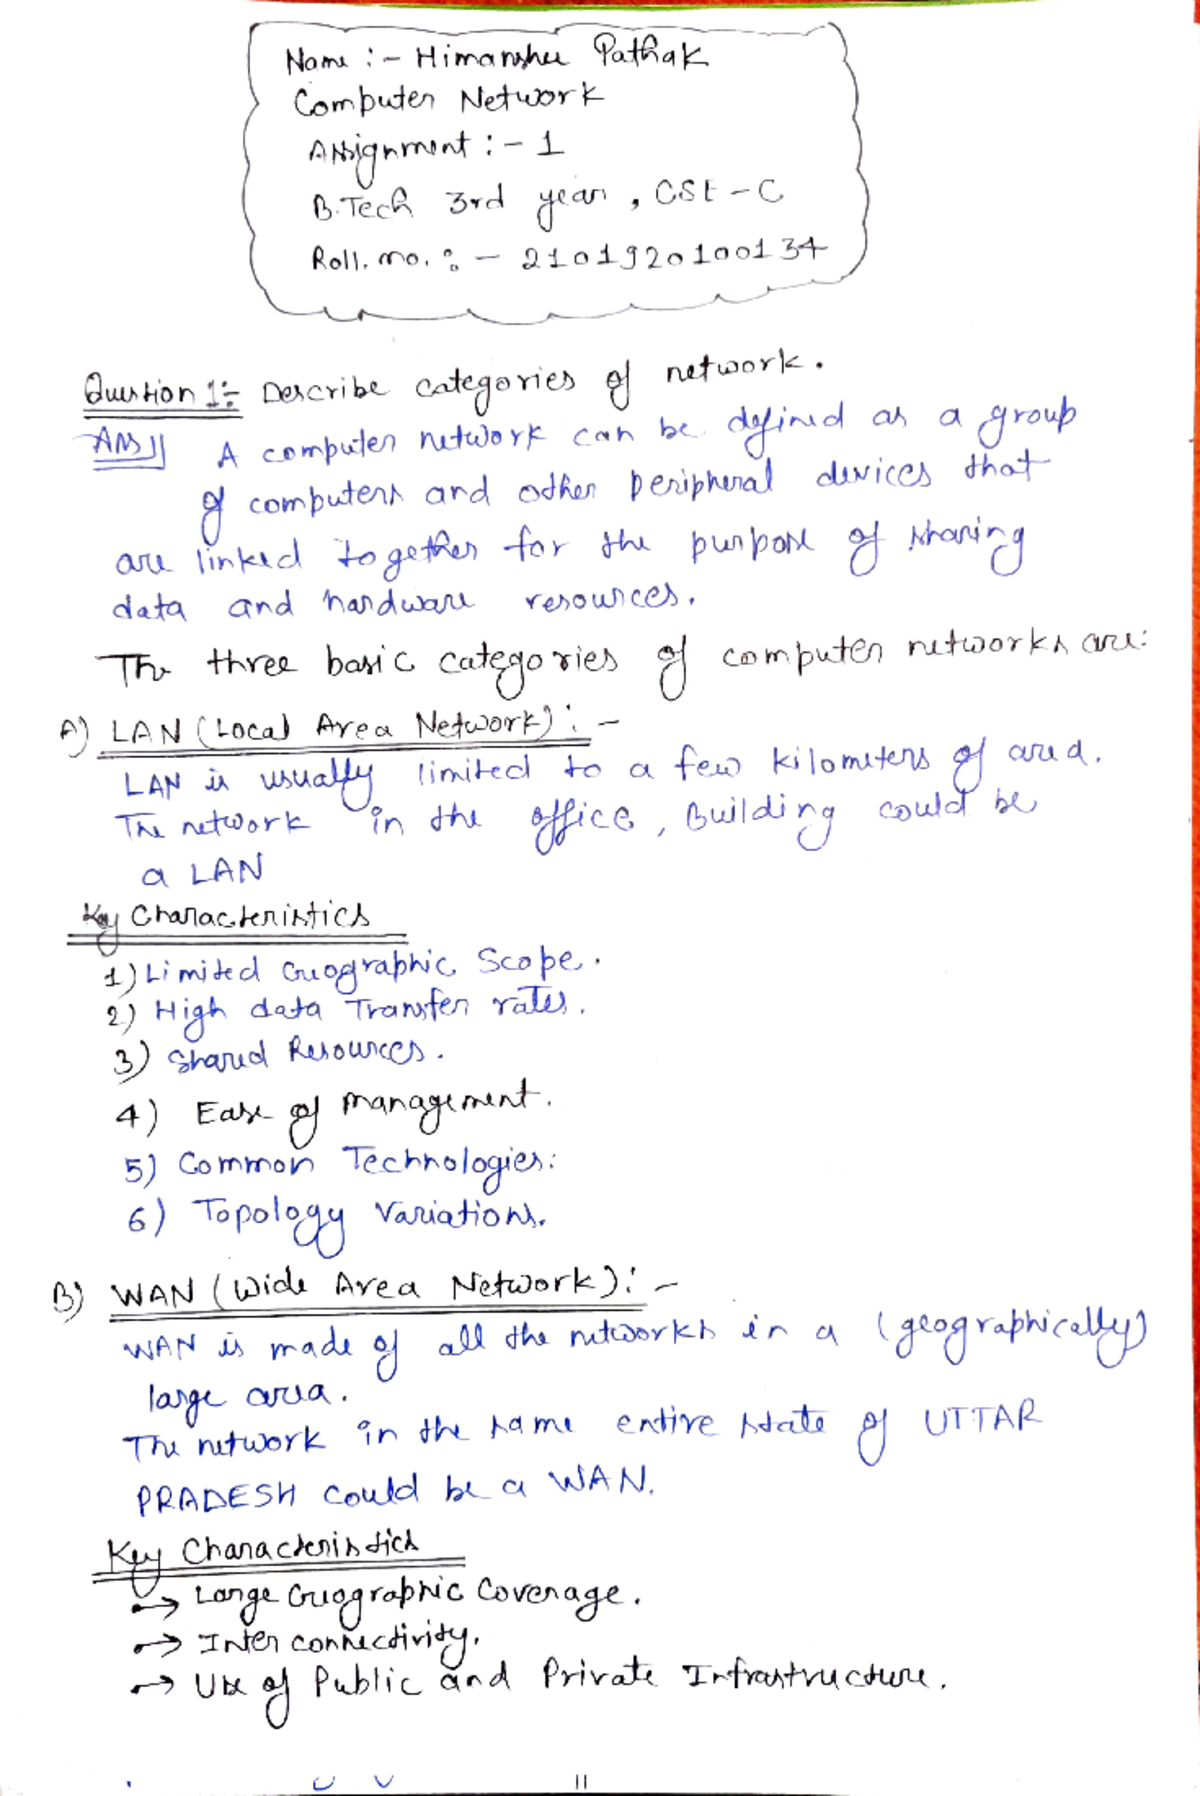 Name :- Himanshu Pathak
Computer Network
Assignment :- 1
B.Tech 3rd year, CSE-C
Roll. no. :- 2101920100134
Question 1:- Describe categories of network.
Ans|| A computer network can be defined as a group
of computers and other peripheral devices that
are linked together for the purpose of sharing
data and hardware resources.
The three basic categories of computer networks are:
A) LAN (Local Area Network) :-
LAN is usually limited to a few kilometers of area.
The network in the office, Building could be
a LAN
Key Characteristics
1) Limited Geographic Scope.
2) High data Transfer rates.
3) Shared Resources.
4) Ease of management.
5) Common Technologies:
6) Topology Variations.
B) WAN (Wide Area Network) :-
WAN is made of all the networks in a (geographically)
large area.
The network in the same entire state of UTTAR
PRADESH could be a WAN.
Key Characteristics
→ Large Geographic Coverage.
→ Inter connectivity.
→ Use of Public and Private Infrastructure.